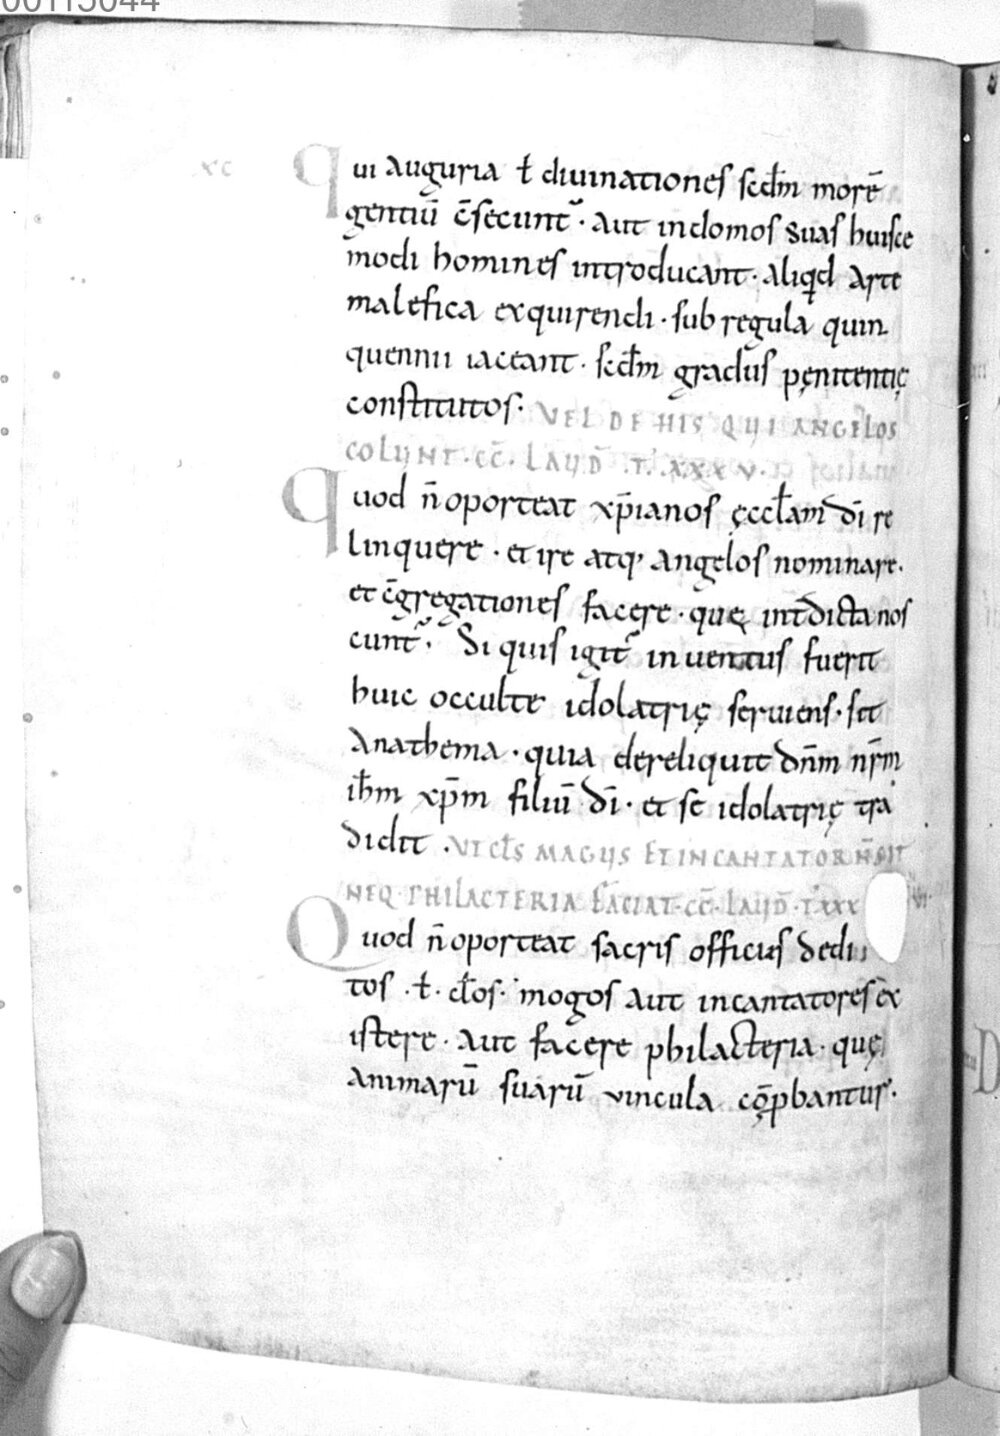 00115044
xc
Qui auguria ł diuinationes scđm morē
gentiū c̄secunt᷑· aut indomos suas huisce
modi homines introducant· aliq̇d arte
malefica exquirendi· sub regula quin
quennii iaceant· scđm gradus pęnitentię
constitutos· VEL DE HIS QUI ANGELOS
COLUNT· CC̄· LAUD̄ ·T· XXXV·
Quod n̄ oporteat xp̄ianos ęccłam dī re
linquere· et ire atq; angelos nominare·
et c̄gregationes facere· quę int̄dictanos
cunt᷑· Si quis igit᷑ inuentus fuerit
huic occulte idolatrię seruiens· sit
Anathema· quia dereliquit dn̄m nr̄m
ih̄m xp̄m filiū dī· et se idolatrię tra
didit· UT CŁS MAGUS ET INCANTATOR N̄ SIT
NEQ PHILACTERIA FACIAT· CC̄· LAUD̄· T XXX VI·
Quod n̄ oporteat sacris officiis dedi
tos ·ł· cłos· mogos aut incantatores ex
istere· aut facere philacteria· quę
animarū suarū uincula cōp̱bantur·